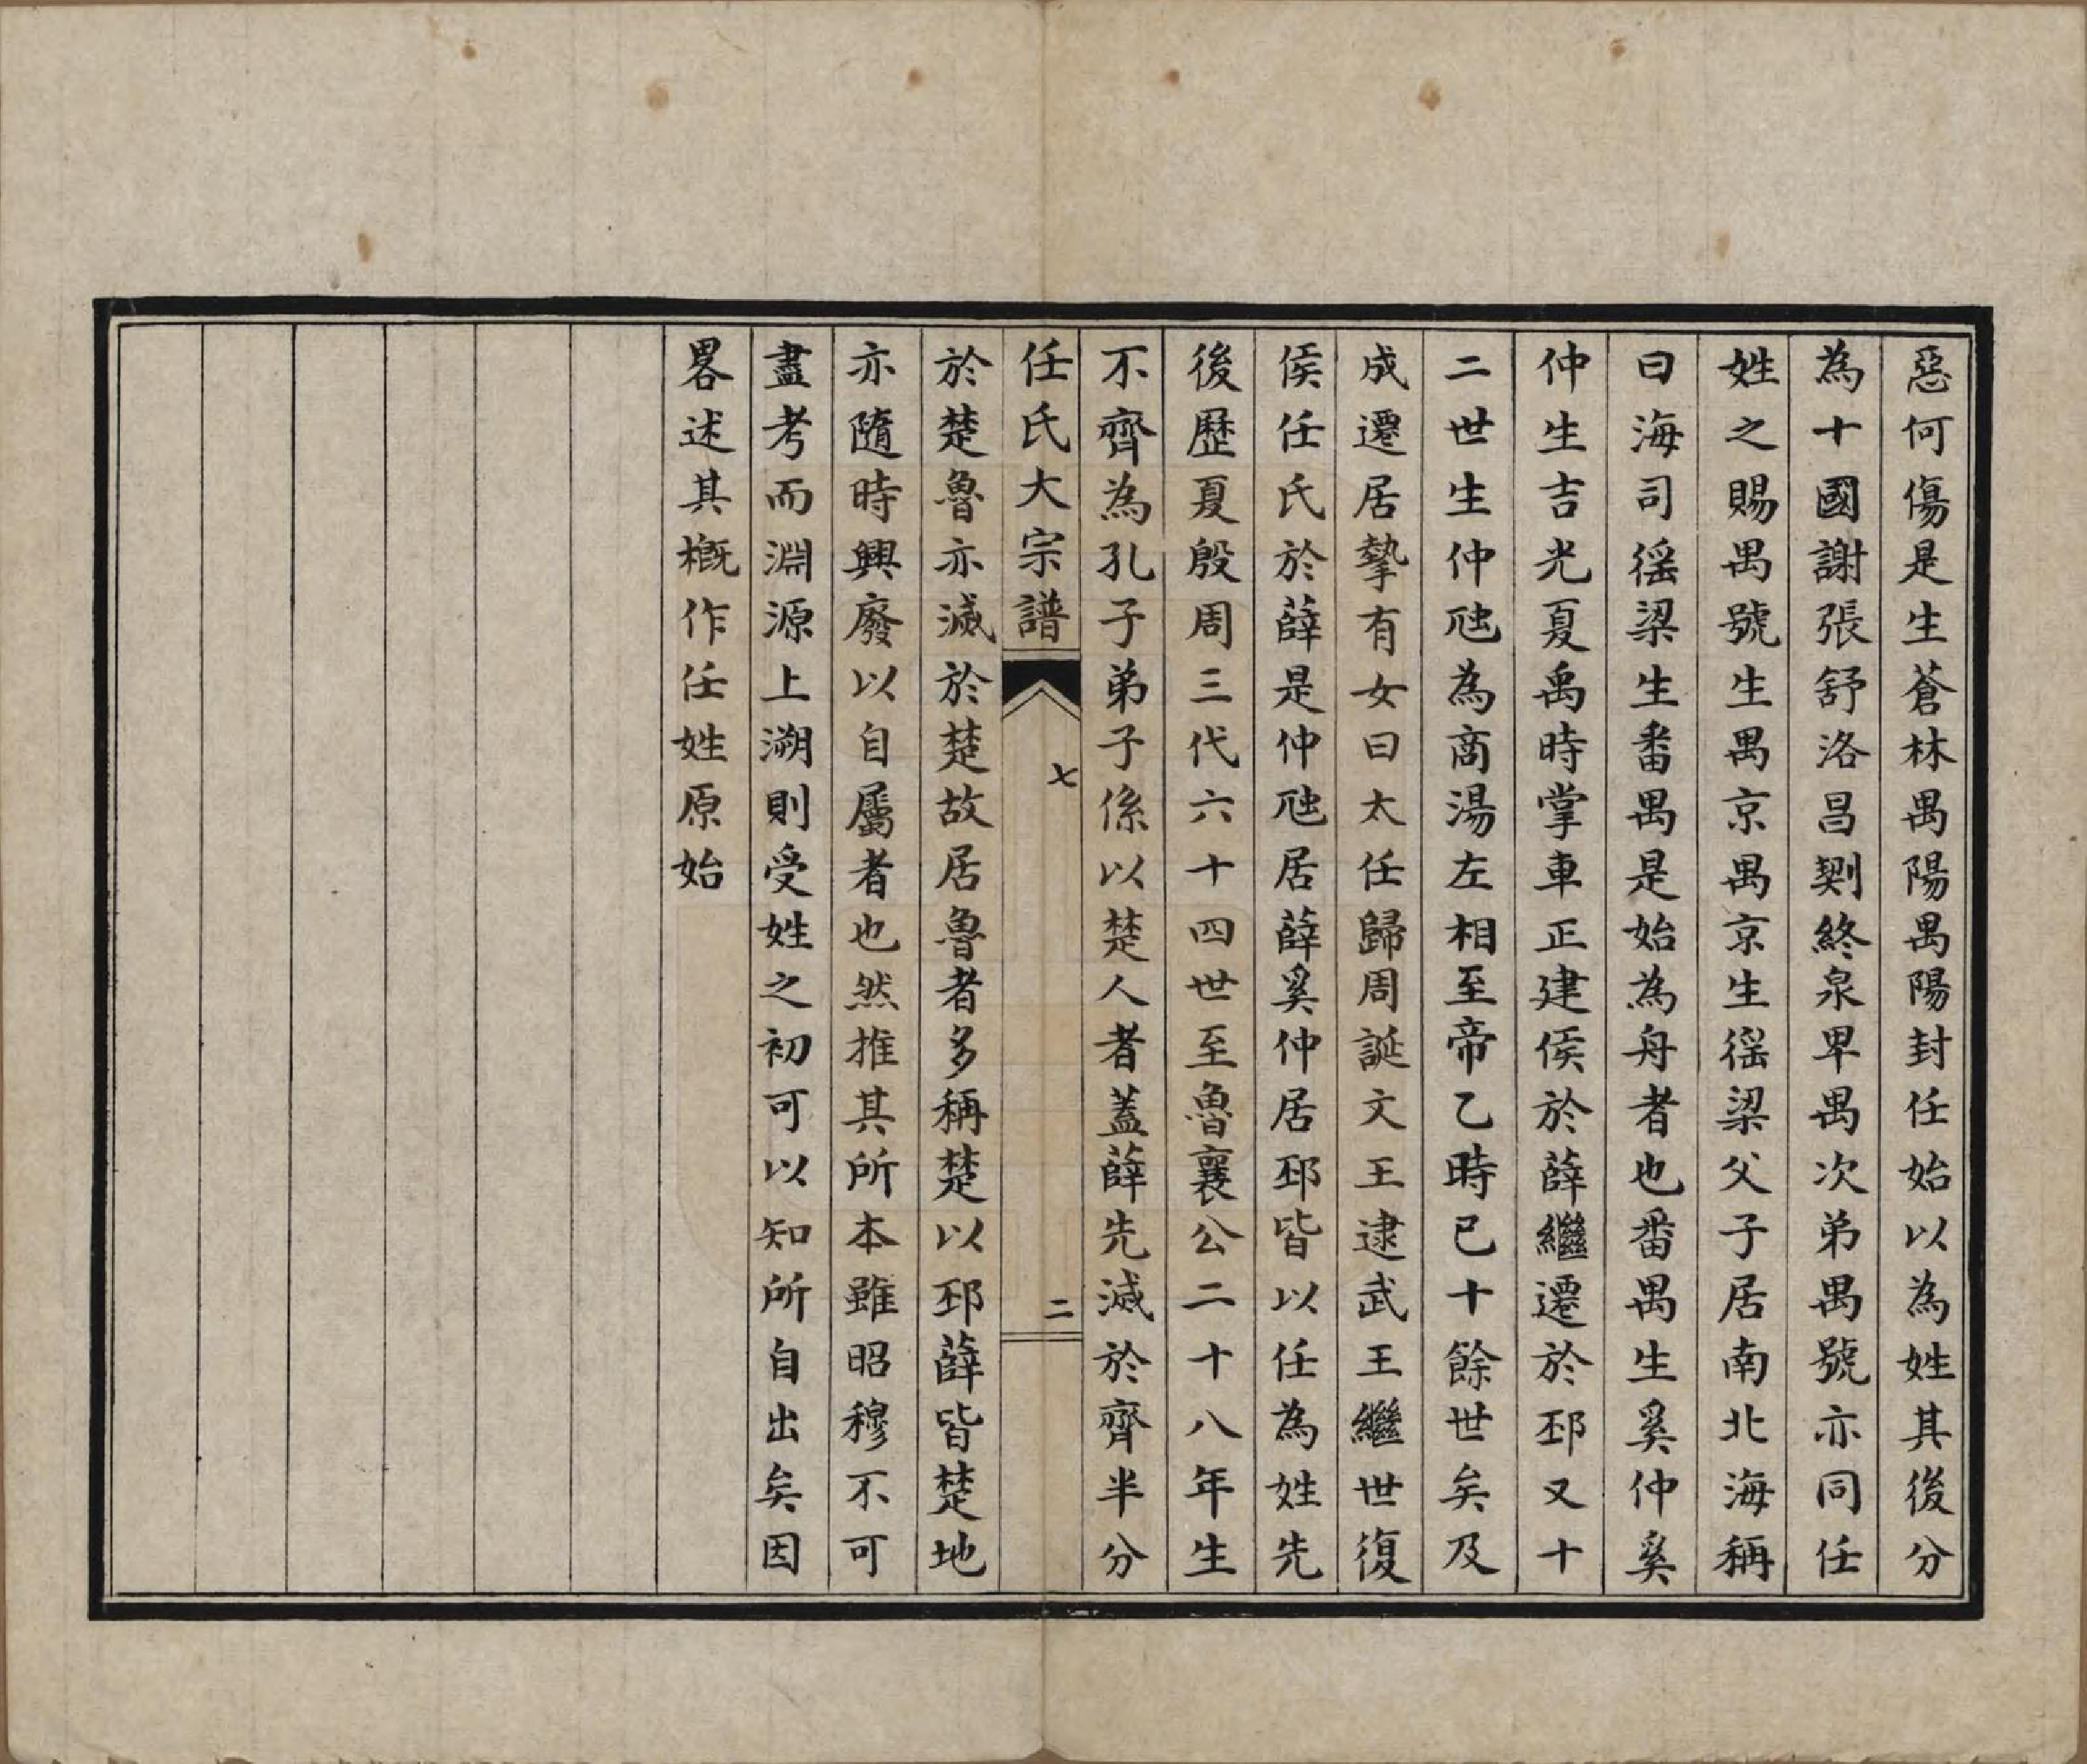 惡何傷是生蒼林禺陽禺陽封任始以為姓其後分
為十國謝張舒洛昌㓶終泉卑禺次弟禺號亦同任
姓之賜禺號生禺京禺京生徭梁父子居南北海稱
曰海司徭梁生番禺是始為舟者也番禺生奚仲奚
仲生吉光夏禹時掌車正建侯於薛繼遷於邳又十
二世生仲虺為商湯左相至帝乙時已十餘世矣及
成遷居摯有女曰太任歸周誕文王逮武王繼世復
侯任氏於薛是仲虺居薛奚仲居邳皆以任為姓先
後歷夏殷周三代六十四世至魯襄公二十八年生
不齊為孔子弟子係以楚人者蓋薛先滅於齊半分
任氏大宗譜 七 二
於楚魯亦滅於楚故居魯者多稱楚以邳薛皆楚地
亦隨時興廢以自屬者也然推其所本雖昭穆不可
盡考而淵源上溯則受姓之初可以知所自出矣因
畧述其概作任姓原始